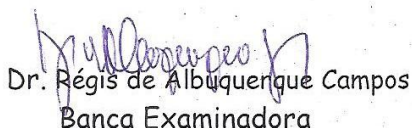 Dr. Régis de Albuquerque Campos
Banca Examinadora